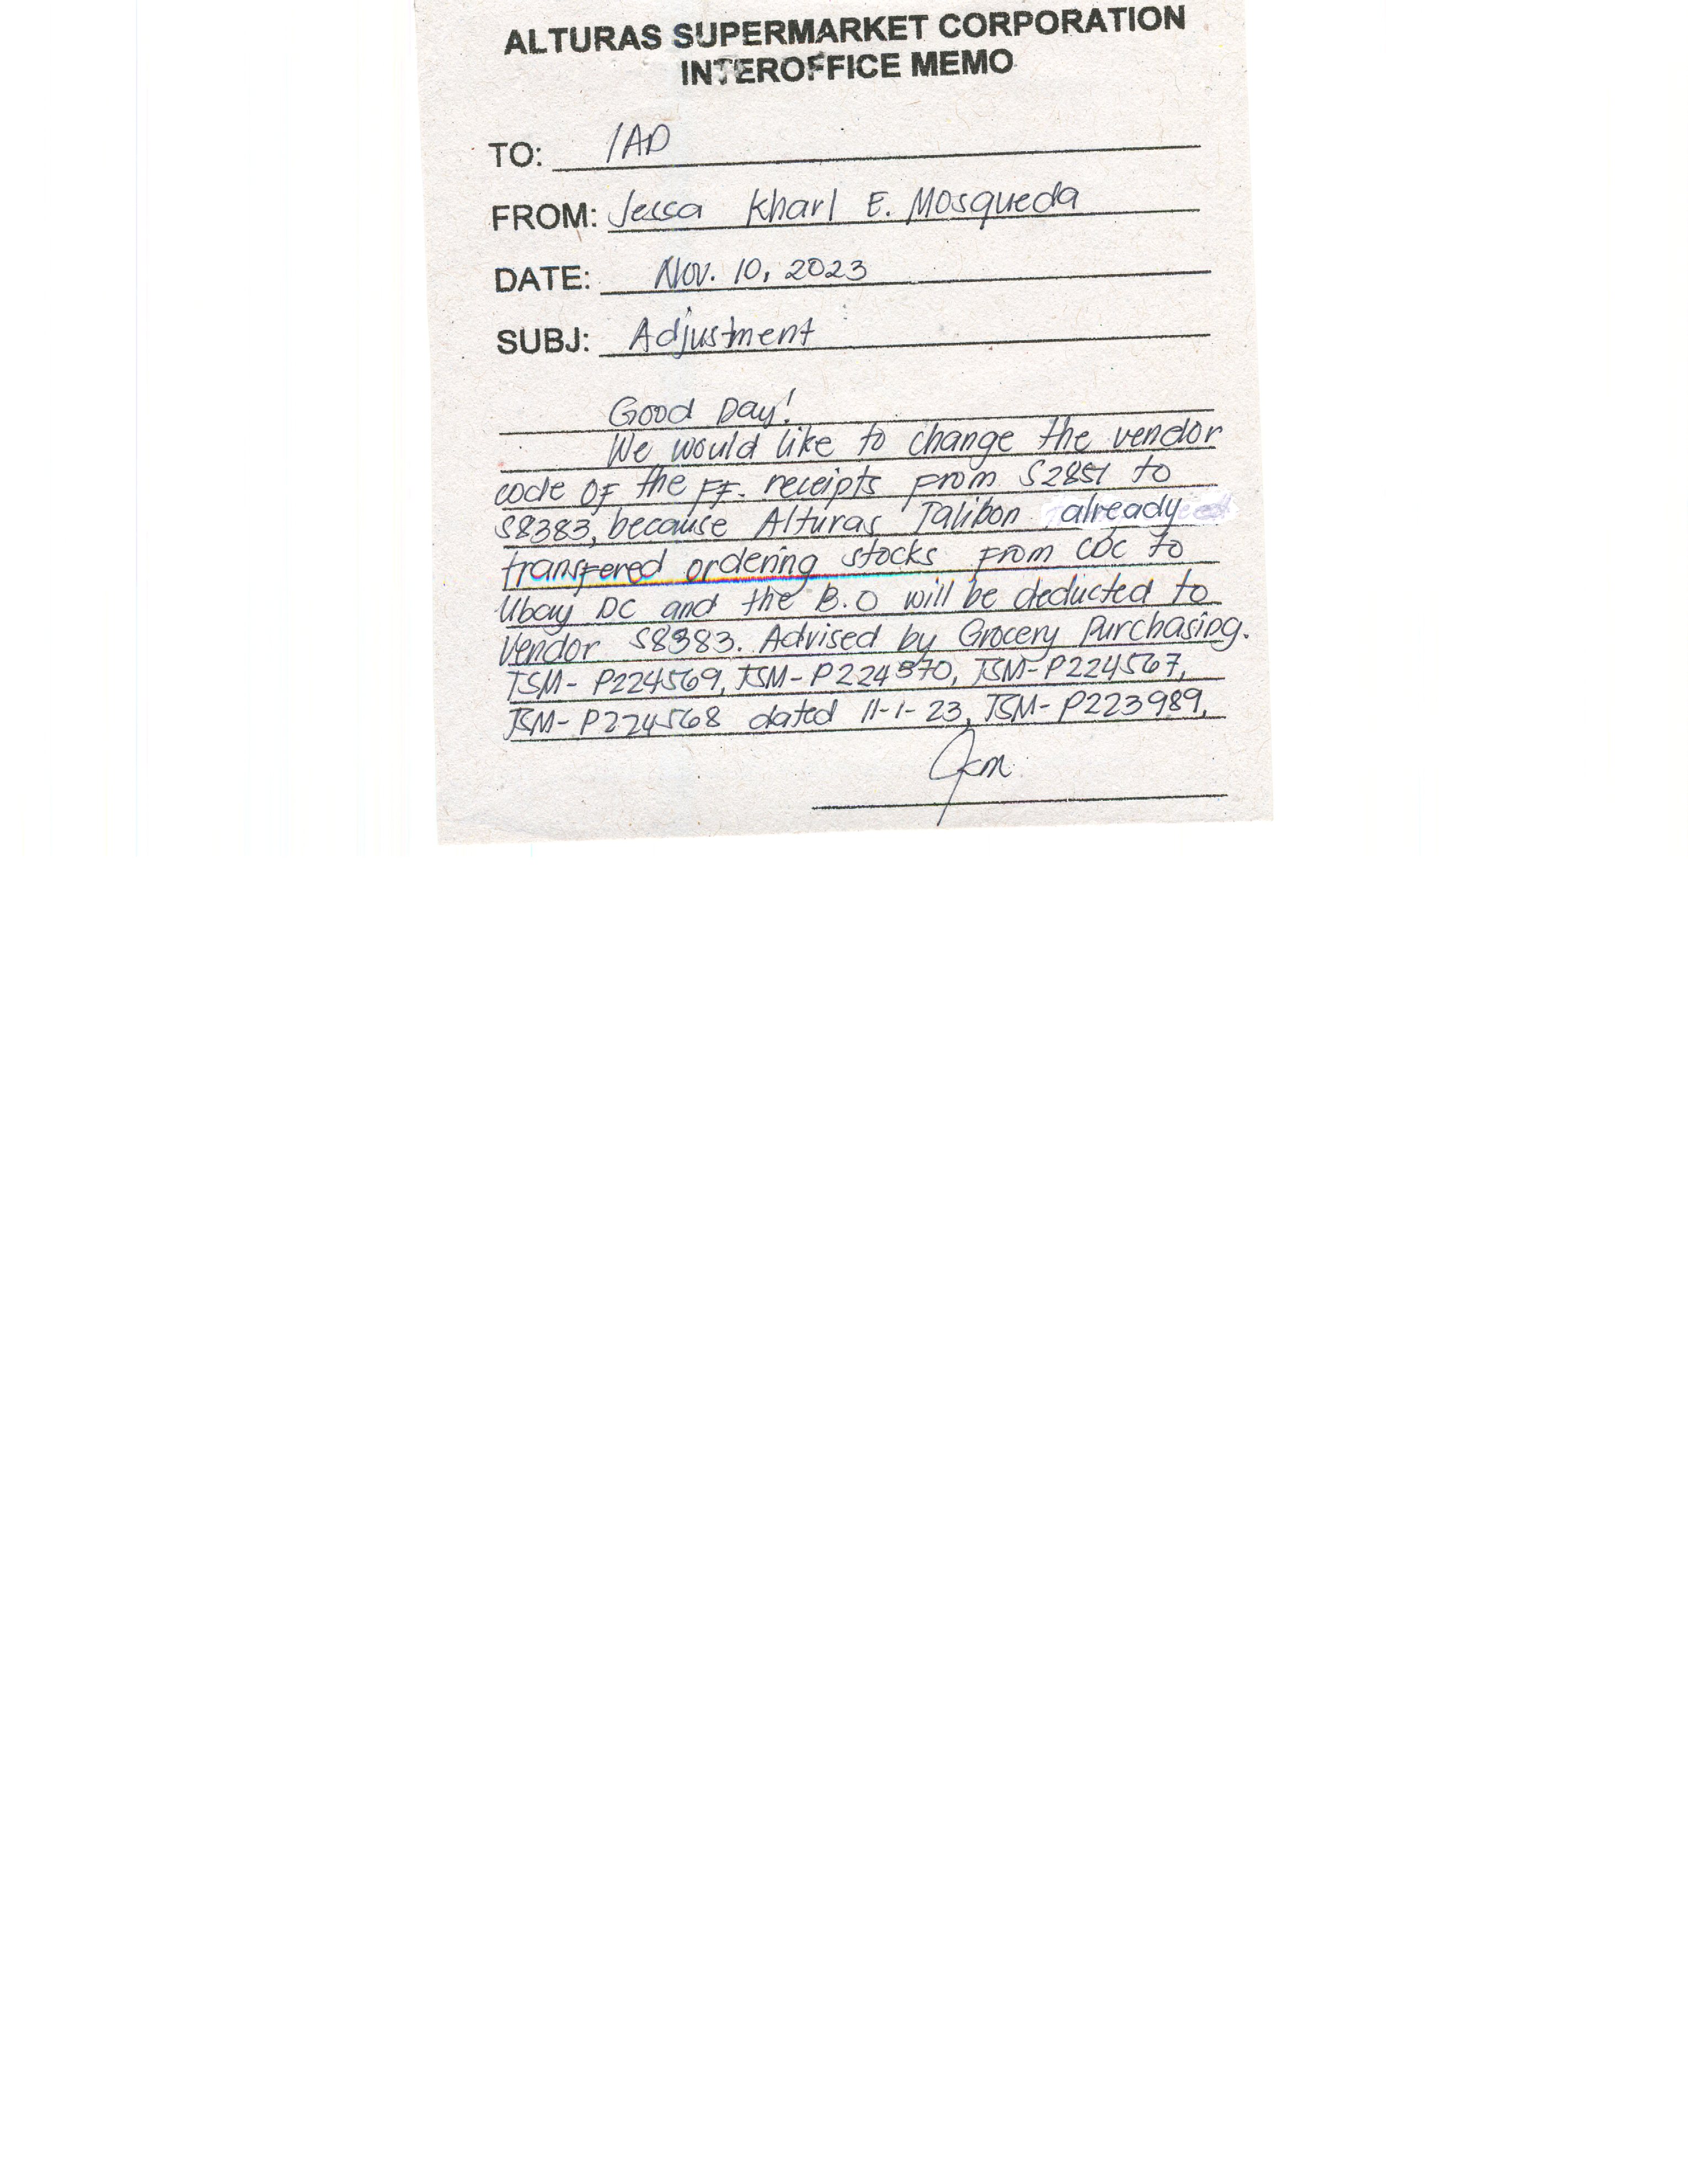 ALTURAS SUPERMARKET CORPORATION
INTEROFFICE MEMO
TO: IAD
FROM: Jessa Kharl E. Mosqueda
DATE: Nov. 10, 2023
SUBJ: Adjustment
Good Day!
We would like to change the vendor
code of the FF. receipts from S2851 to
S8383, because Alturas Talibon already
transfered ordering stocks from CDC to
Ubay DC and the B.O will be deducted to
Vendor S8383. Advised by Grocery Purchasing.
TSM-P224569, TSM-P224570, TSM-P224567,
TSM-P224568 dated 11-1-23, TSM-P223989,
Jkm